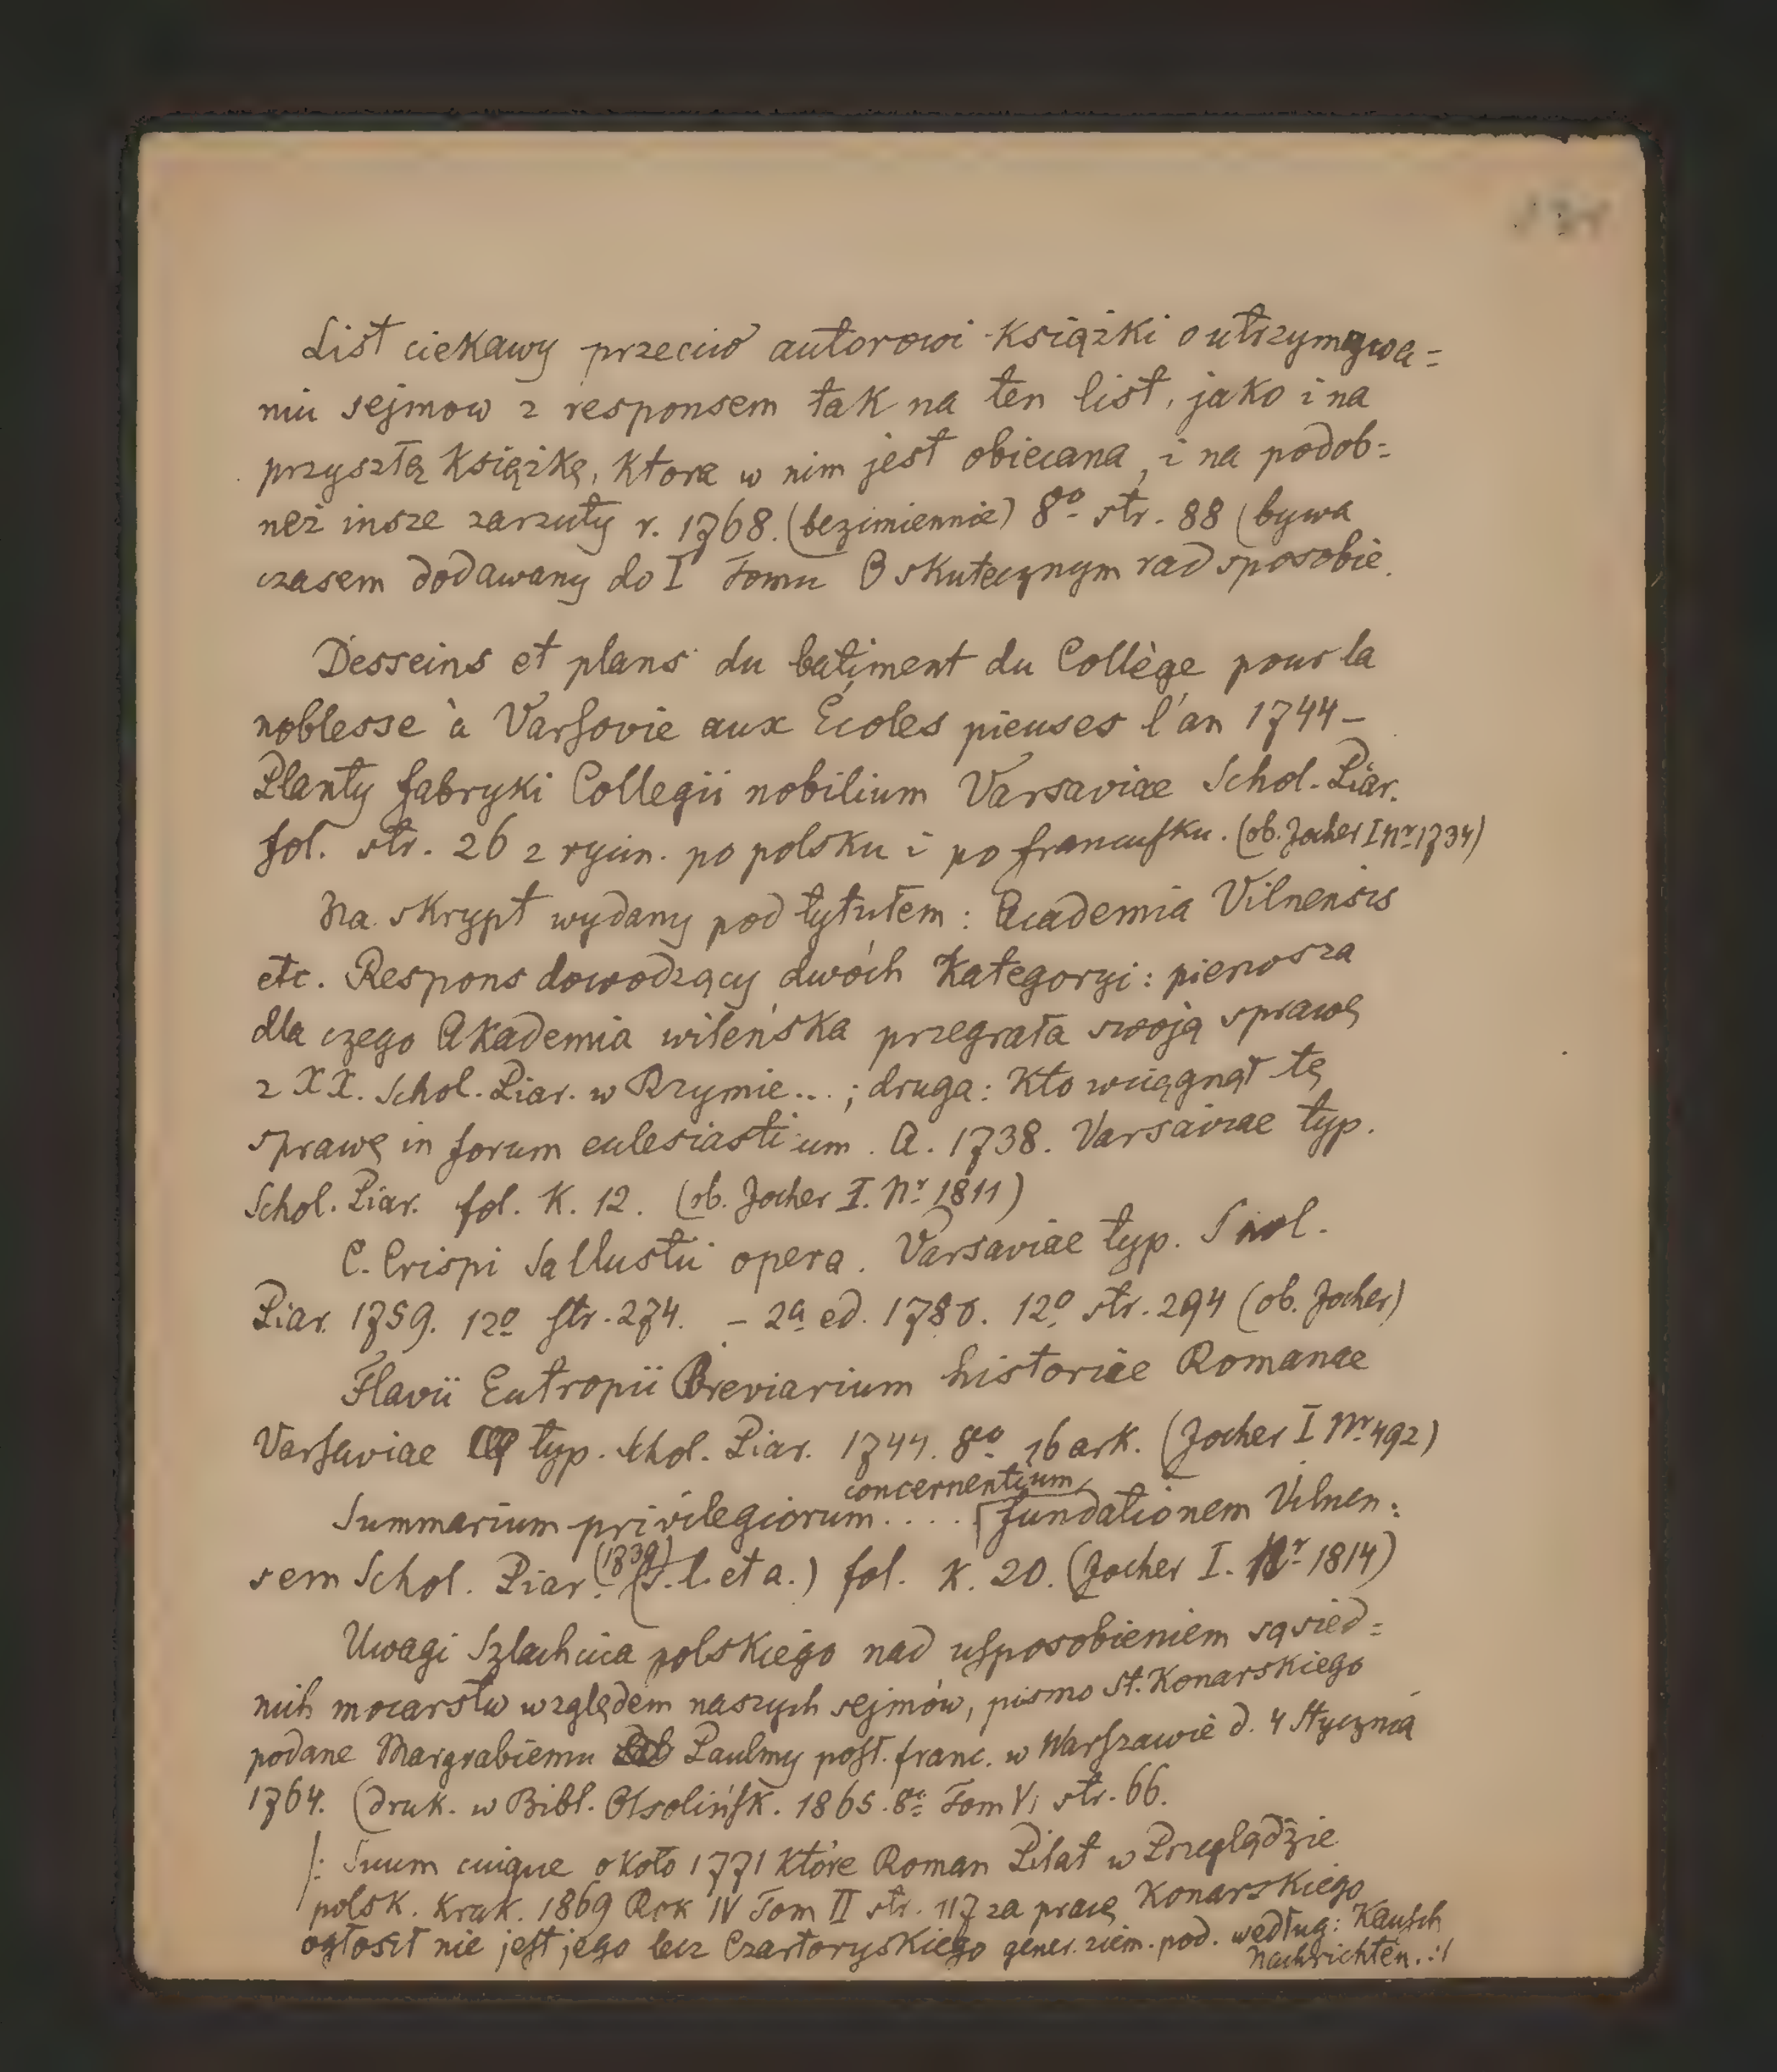 List ciekawy przeciw autorowi książki o utrzymywa=
niu sejmow z responsem tak na ten list, jako i na
przyszłą książkę, która w nim jest obiecana, i na podob=
neż insze zarzuty r. 1768. (bezimiennie) 8o str. 88 (bywa
czasem dodawany do I Tomu O skutecznym rad sposobie.
Desseins et plans du batiment du Collège pour la
noblesse à Varsovie aux Écoles pieuses l'an 1744 –
Planty fabryki Collegii nobilium Varsaviae Schol. Piar.
fol. str. 26 z rycin. po polsku i po francusku. (ob. Jocher I Nr 1734)
Na skrypt wydany pod tytułem: Academia Vilnensis
etc. Respons dowodzący dwóch kategoryi: pierwsza
dla czego Akademia wileńska przegrała swoją sprawę
z XX. Schol. Piar. w Rzymie...; druga: kto wciągnął tę
sprawę in forum eclesiasticum. A. 1738. Varsaviae typ.
Schol. Piar. fol. k. 12. (ob. Jocher I. Nr 1811)
C. Crispi Sallustii opera. Varsaviae typ. Schol.
Piar. 1759. 12o str. 274. – 2a ed. 1780. 12o str. 294 (ob. Jocher)
Flavii Eutropii Breviarium historiae Romanae
Varsaviae typ. Schol. Piar. 1744. 8o 16 ark. (Jocher I Nr 492)
concernentium
Summarium privilegiorum.... fundationem Vilnen=
sem Schol. Piar. (1739) (S. l. et a.) fol. k. 20. (Jocher I. Nr 1814)
Uwagi Szlachcica polskiego nad usposobieniem sąsied=
nich mocarstw względem naszych sejmów, pismo St. Konarskiego
podane Margrabiemu Paulmy posł. franc. w Warszawie d. 4 Stycznia
1764. (druk. w Bibl. Ossolińsk. 1865. 8o Tom VI str. 66.
/: Suum cuique około 1771 które Roman Piłat w Przeglądzie
polsk. Krak. 1869 Rok IV Tom II str. 117 za pracę Konarskiego
ogłosił nie jest jego lecz Czartoryskiego gener. ziem. pod. według: Kausch
Nachrichten. :/